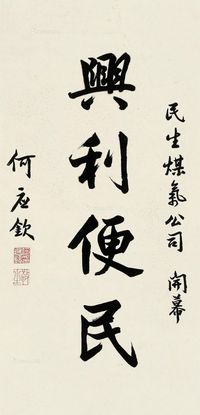 民生煤氣公司 開幕
興利便民
何应欽